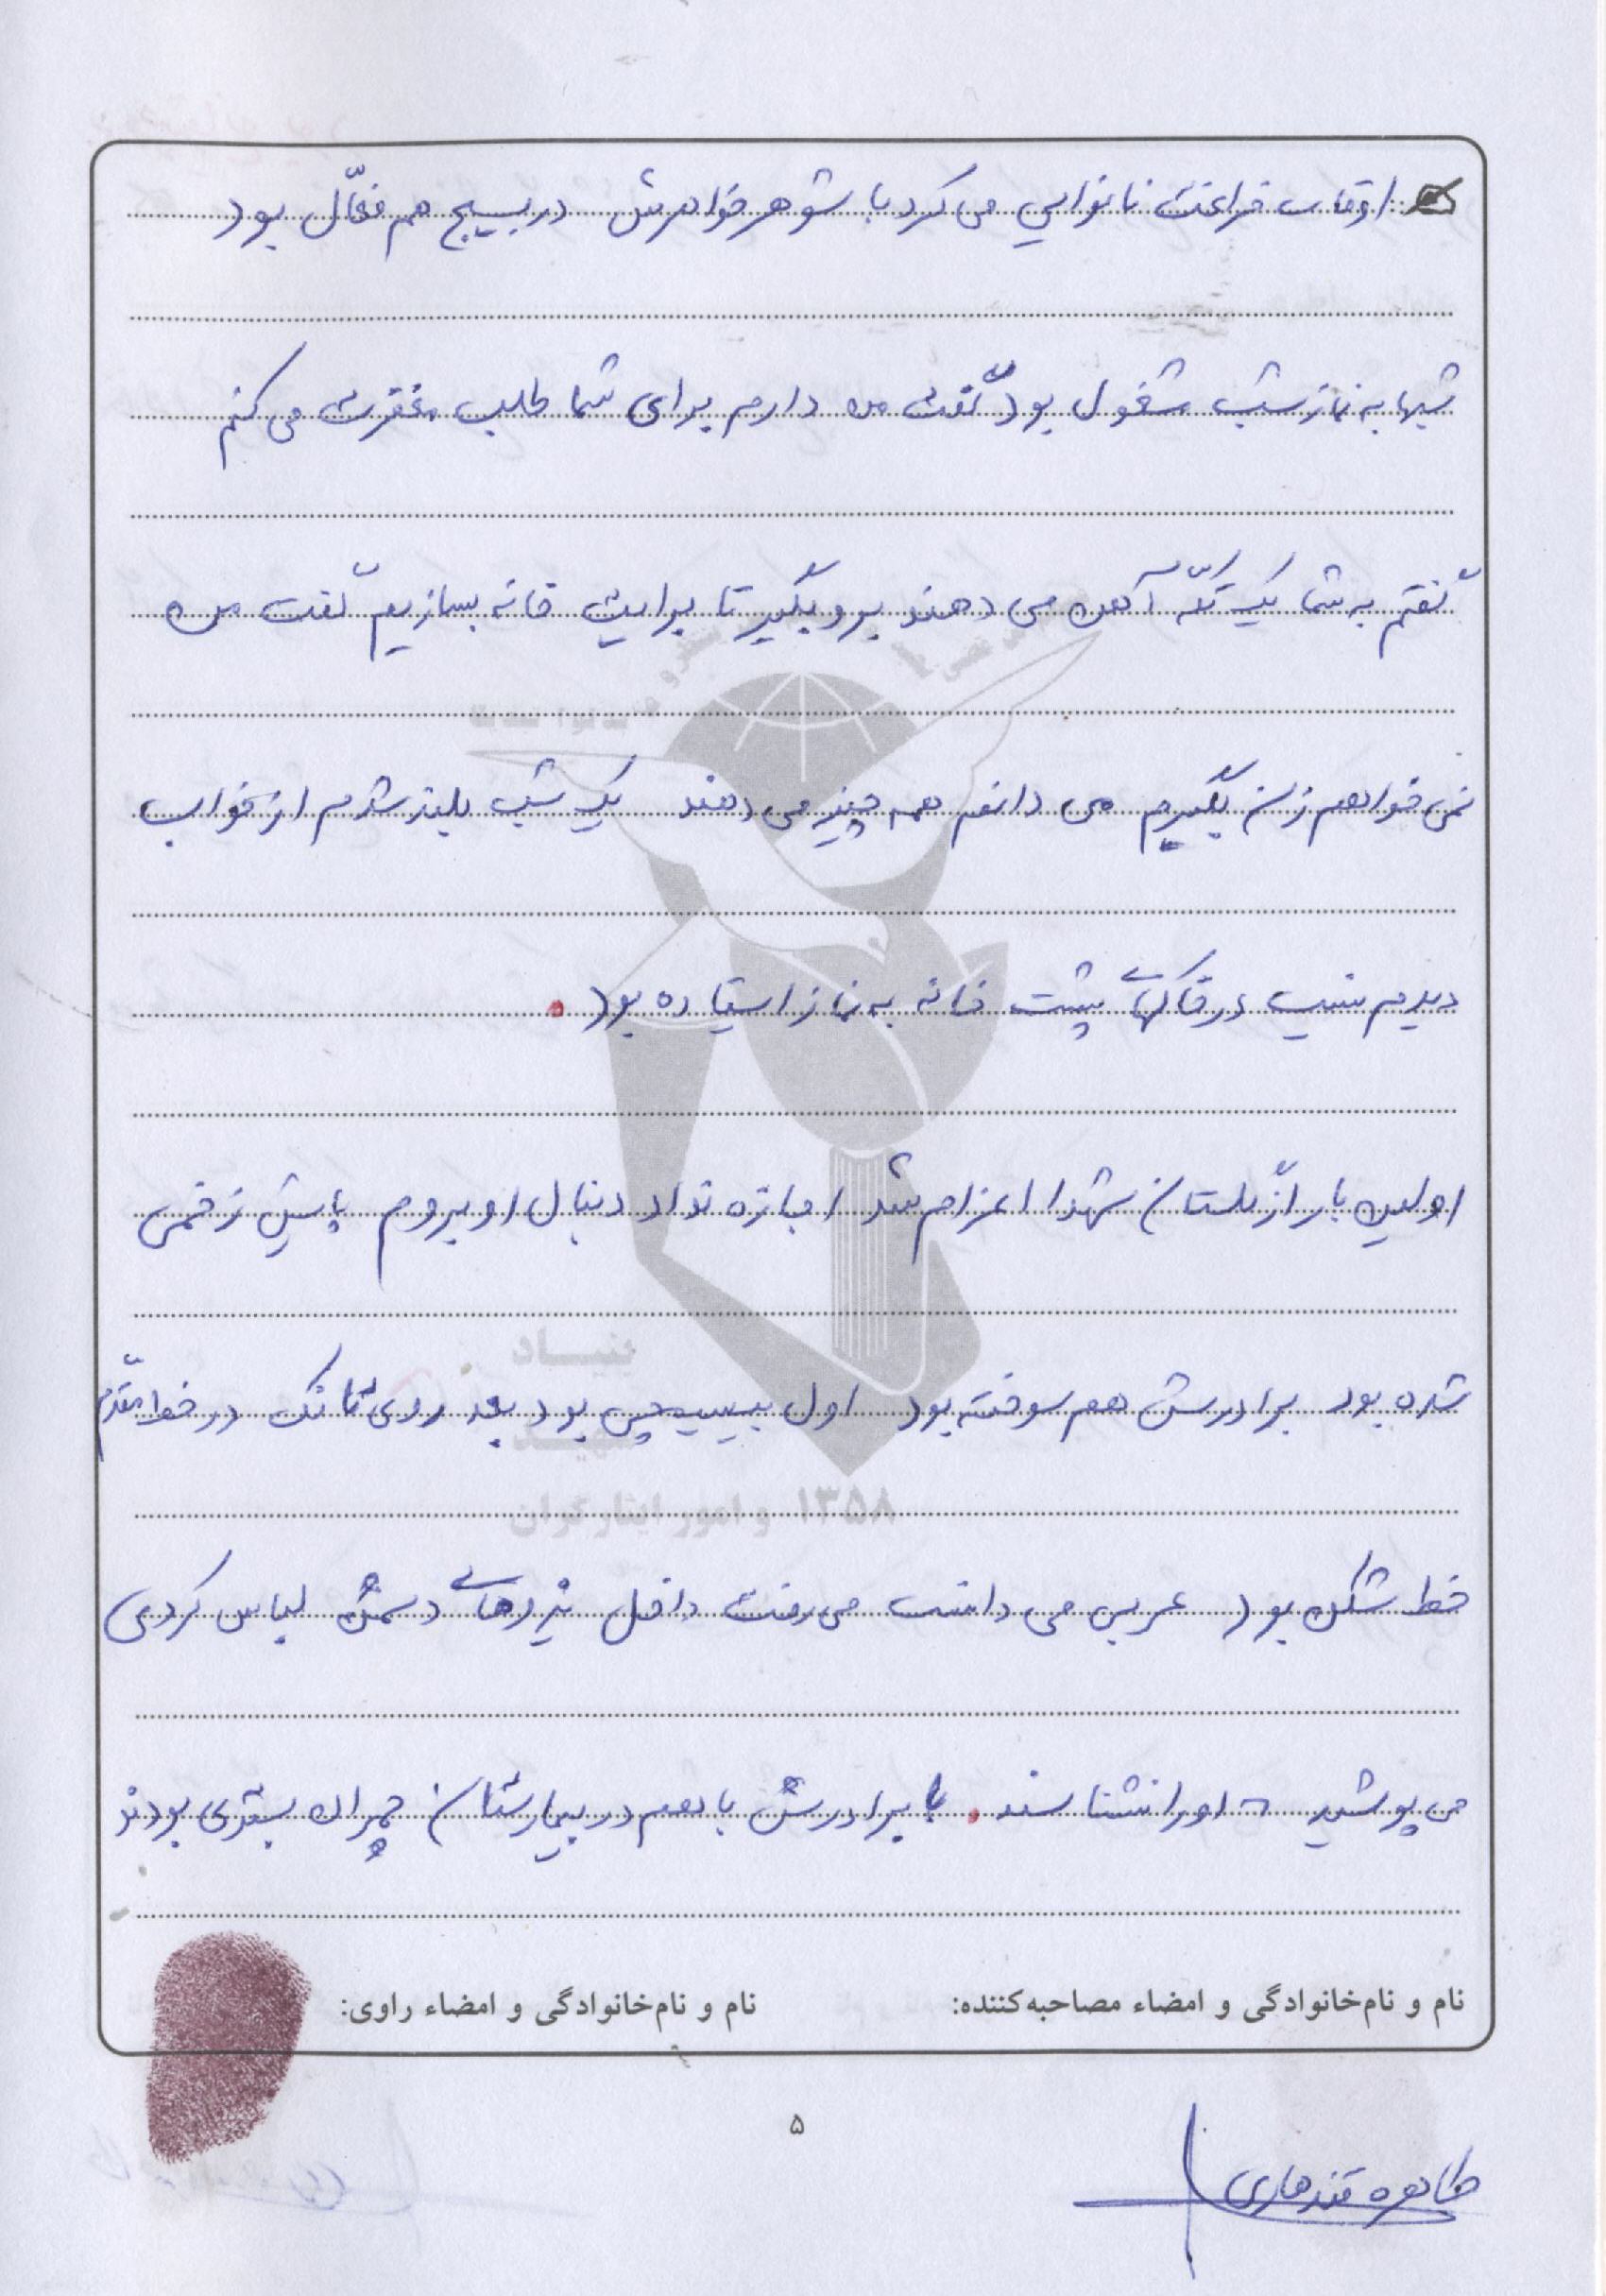 اوقات فراغت نانوایی می کرد با شوهر خواهرش در بسیج هم فعّال بود
شبها به نماز شب مشغول بود گفت من دارم برای شما طلب مغفرت می کنم
گفتم به شما یک تکّه آهن می دهند برو بگیر تا برایت خانه بسازیم گفت من
نمی خواهم زن بگیرم می دانم همه چیز می دهند یک شب بلند شدم از خواب
دیدم نیست در خاکهای پشت خانه به نماز استاده بود .
اولین بار از گلستان شهدا اعزام شد اجازه نداد دنبال او بروم پایش زخمی
شده بود برادرش هم سوخته بود اول بسیجی بود بعد روی تانک در خط مقدم
خط شکن بود عربی می دانست می رفت داخل نیروهای دشمن لباس کردی
می پوشید تا او را نشناسند . با برادرش با هم در بیمارستان چمران بستری بودند
بنیاد
شهید
و امور ایثارگران ۱۳۵۸
نام و نام‌خانوادگی و امضاء مصاحبه‌کننده: نام و نام‌خانوادگی و امضاء راوی:
۵
طاهره قندهاری